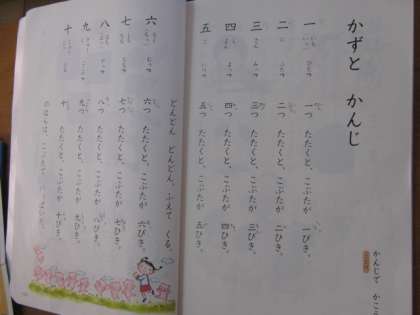 かずと かんじ
一
一つ たたくと、こぶたが 一ぴき。
二
二つ たたくと、こぶたが 二ひき。
三
三つ たたくと、こぶたが 三びき。
四
四つ たたくと、こぶたが 四ひき。
五
五つ たたくと、こぶたが 五ひき。
どんどん どんどん、ふえて くる。
六
六つ たたくと、こぶたが 六ぴき。
七
七つ たたくと、こぶたが 七ひき。
八
八つ たたくと、こぶたが 八ぴき。
九
九つ たたくと、こぶたが 九ひき。
十
十 たたくと、こぶたが 十ぴき。
のはらは、こぶたで いっぱいだ。
かんじで かこう